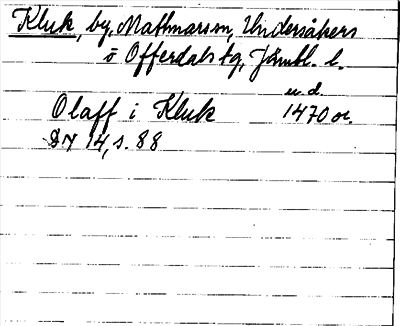 Kluk, by, Mathmarsm, Undersåkers
o Offerdals tg, Jämtl. l.
u. d.
Olaff i Kluk 1470 or.
DN 14, s. 88